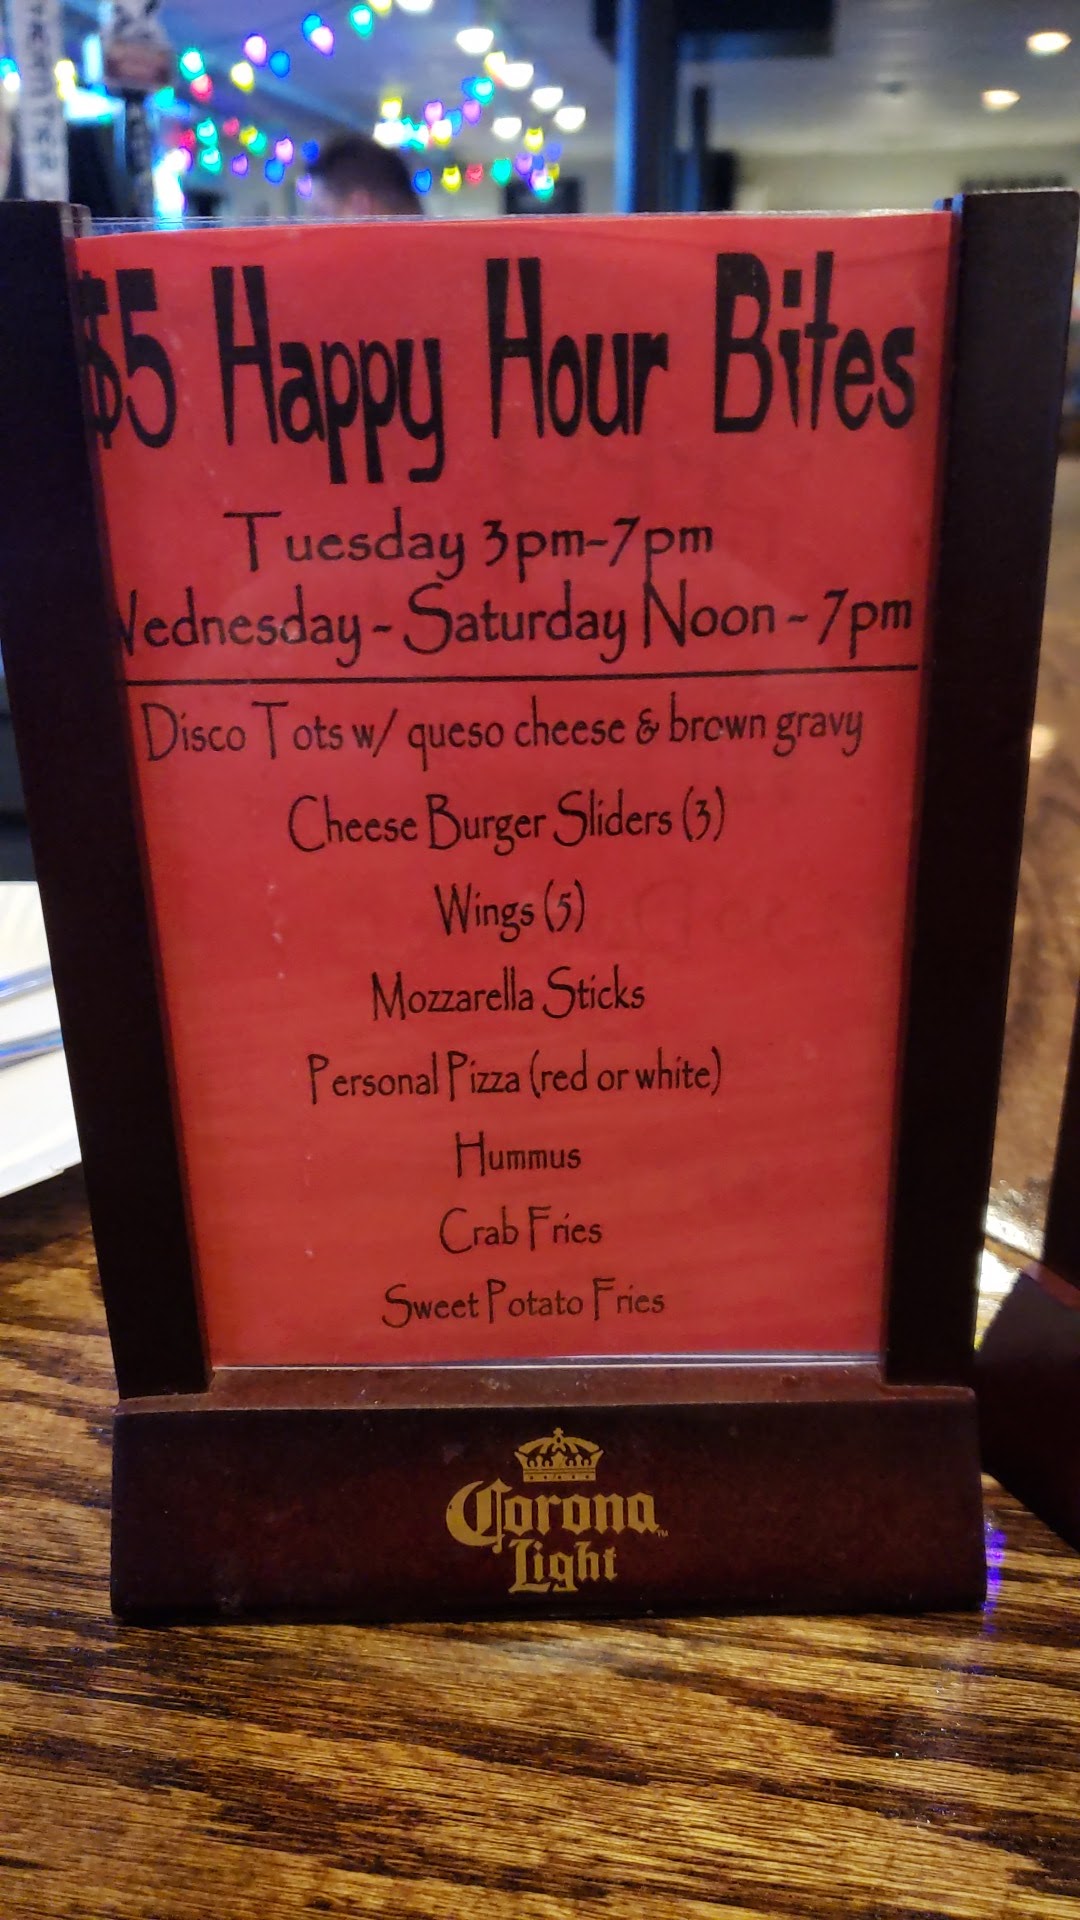 $5 Happy Hour Bites
Tuesday 3pm-7pm
Wednesday - Saturday Noon - 7pm
Disco Tots w/ queso cheese & brown gravy
Cheese Burger Sliders (3)
Wings (5)
Mozzarella Sticks
Personal Pizza (red or white)
Hummus
Crab Fries
Sweet Potato Fries
Corona™
Light